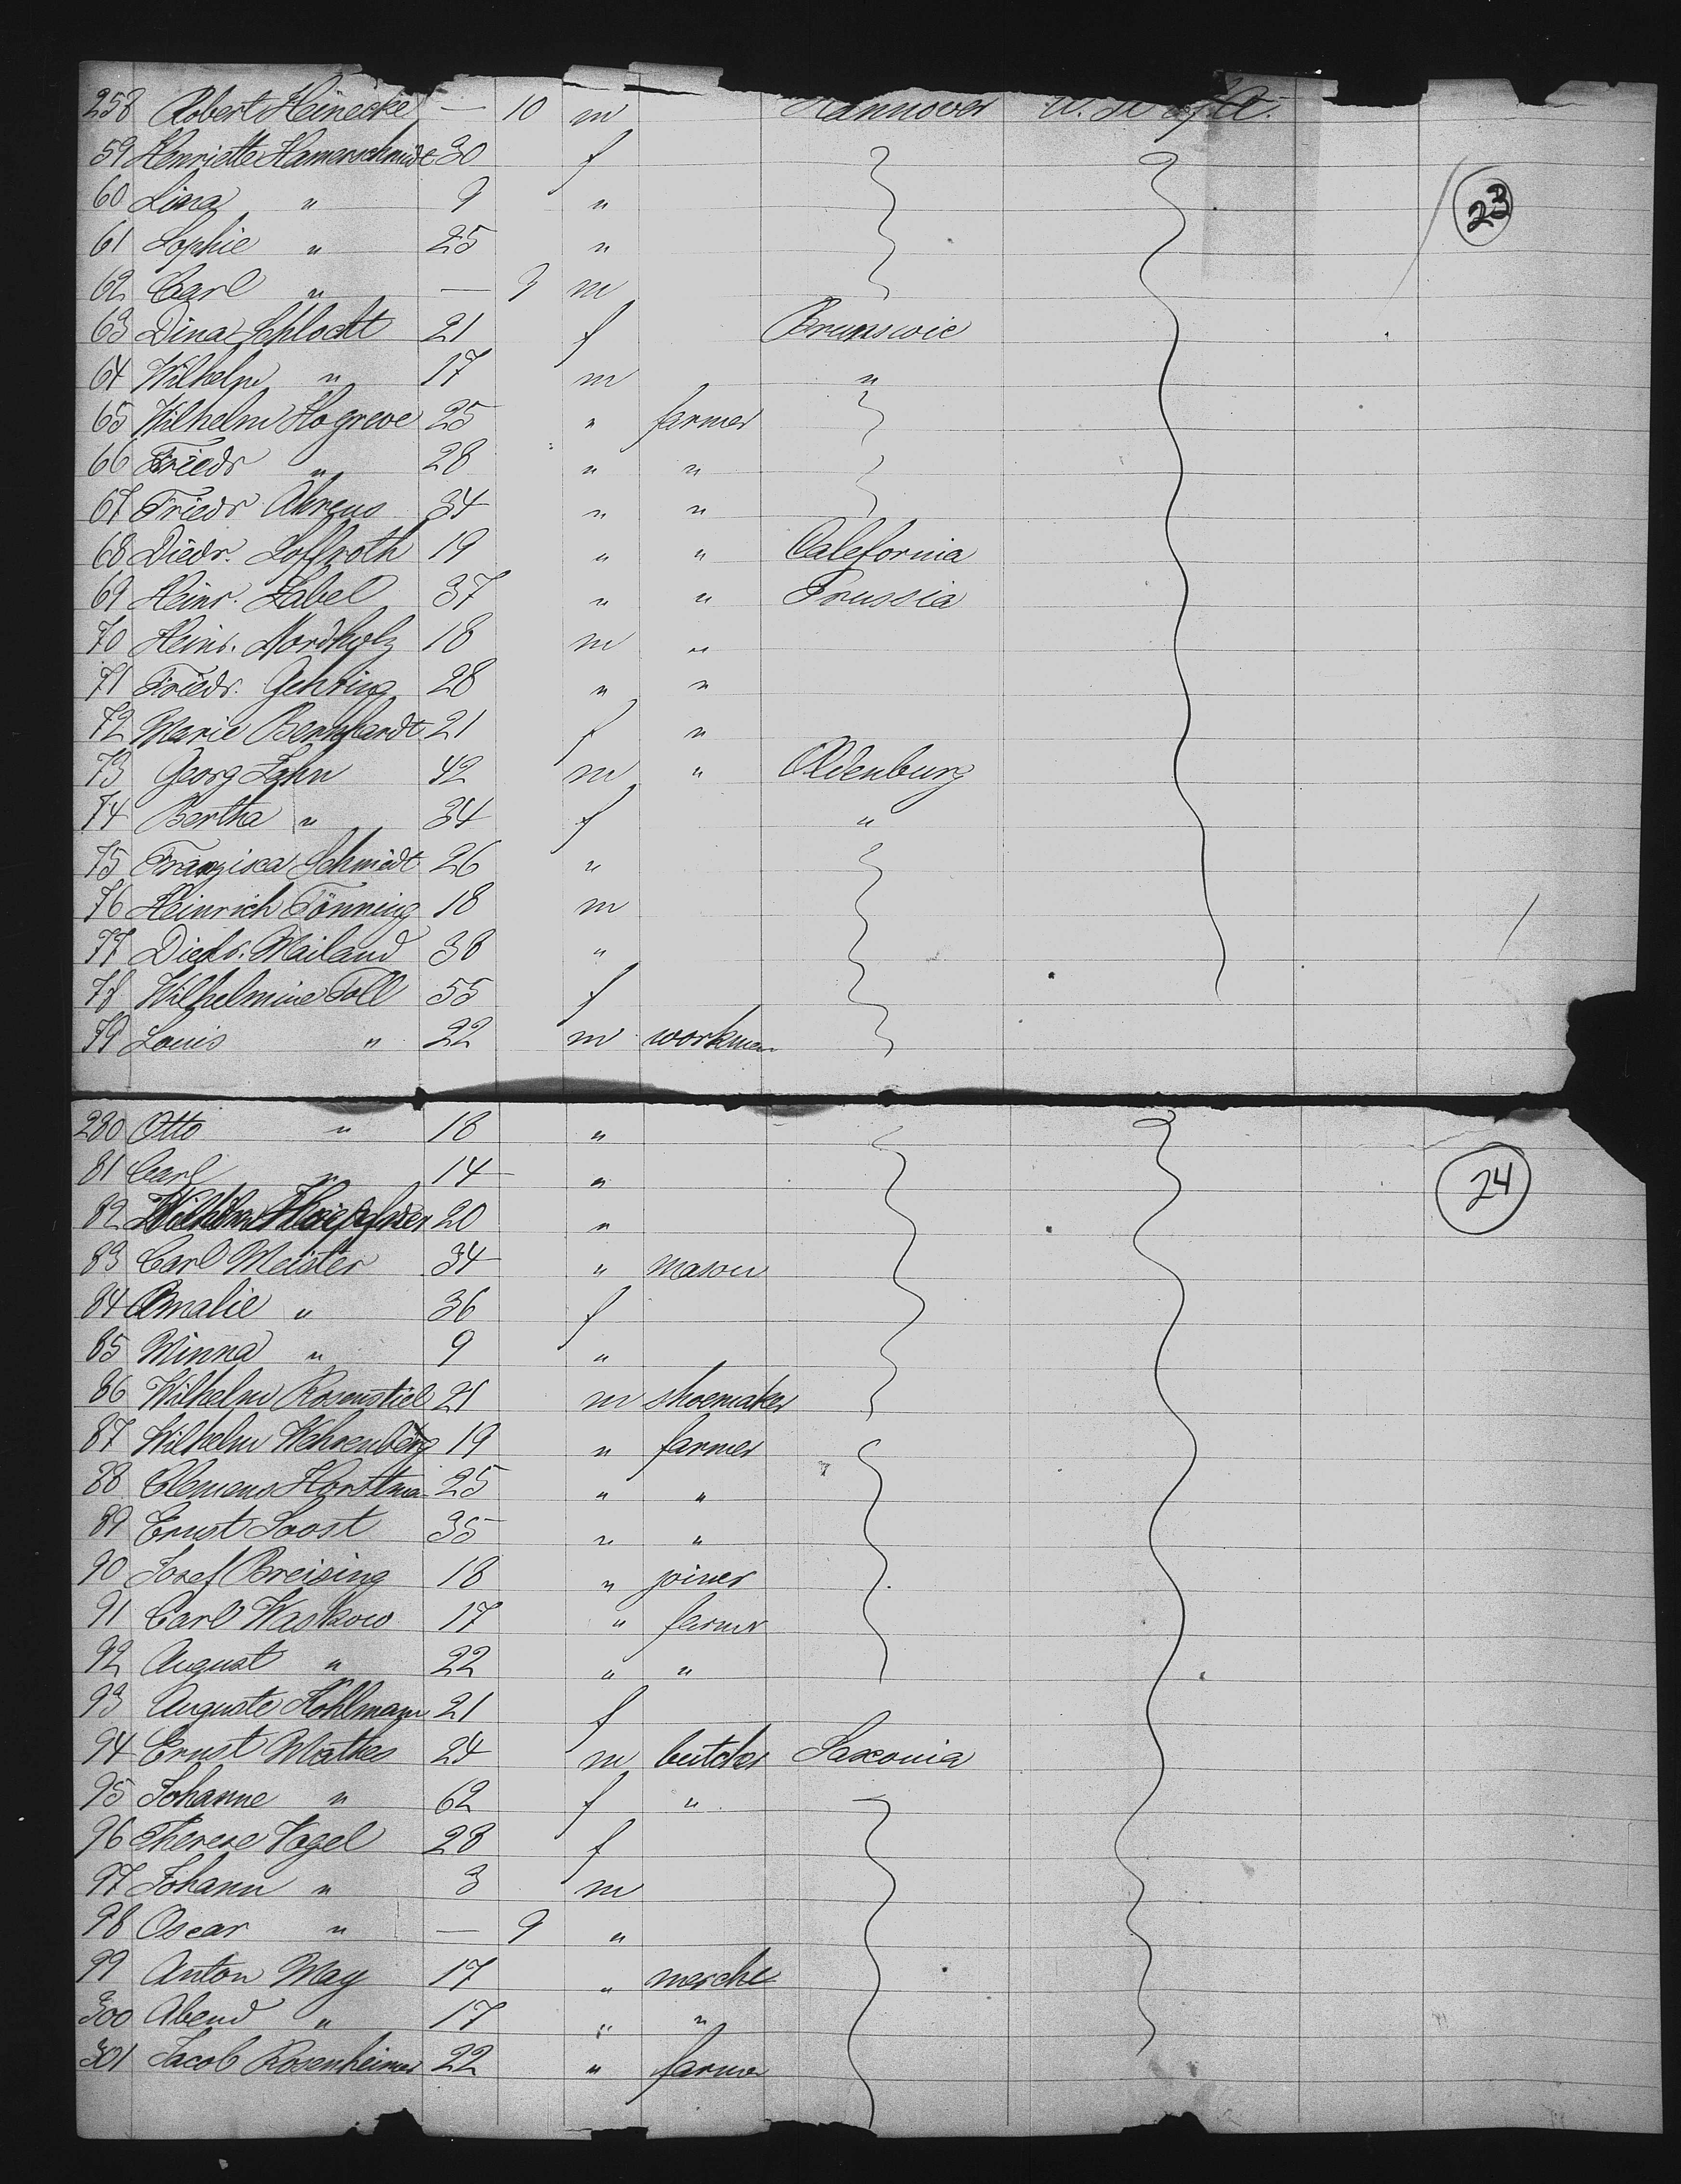 258 Robert Heinecke — 10 m Hannover U. S. of A.
59 Henriette Hamerschmidt 30 f
23
60 Lina " 9 "
61 Sophie " 25 "
62 Carl " — 9 m
63 Dina Schlocht 21 f Brunswic
64 Wilhelm " 17 m "
65 Wilhelm Hogreve 25 " farmer
66 Friedr " 28 " "
67 Friedr Ahrens 34 " "
68 Diedr. Loffroth 19 " " Calefornia
69 Heinr. Label 37 " " Prussia
70 Heinr. Nordholz 18 m "
71 Friedr. Gehring 28 " "
72 Marie Bernhardt 21 f "
73 Georg Lahn 42 m " Oldenburg
74 Bertha " 34 f "
75 Franzisca Schmidt 26 "
76 Heinrich Tönning 18 m
77 Diedr. Mailand 38 "
78 Wilhelmine Toll 55 f
79 Louis " 22 m workman
280 Otto " 18 "
81 Carl " 14 "
24
82 20 "
83 Carl Meister 34 " mason
84 Amalie " 36 f
85 Minna " 9 "
86 Wilhelm Rosenstiel 21 m shoemaker
87 Wilhelm Wehrenberg 19 " farmer
88 Clemens Horstma 25 " "
89 Ernst Soost 35 " "
90 Josef Breising 18 " joiner
91 Carl Waskow 17 " farmer
92 August " 22 " "
93 Auguste Kohlmann 21 f
94 Ernst Mathes 24 m butcher Saxonia
95 Johanne " 62 f "
96 Therese Vogel 28 f
97 Johann " 3 m
98 Oscar " — 9 "
99 Anton May 17 " merche
300 Abend " 17 " "
301 Jacob Rosenheimer 22 " farmer